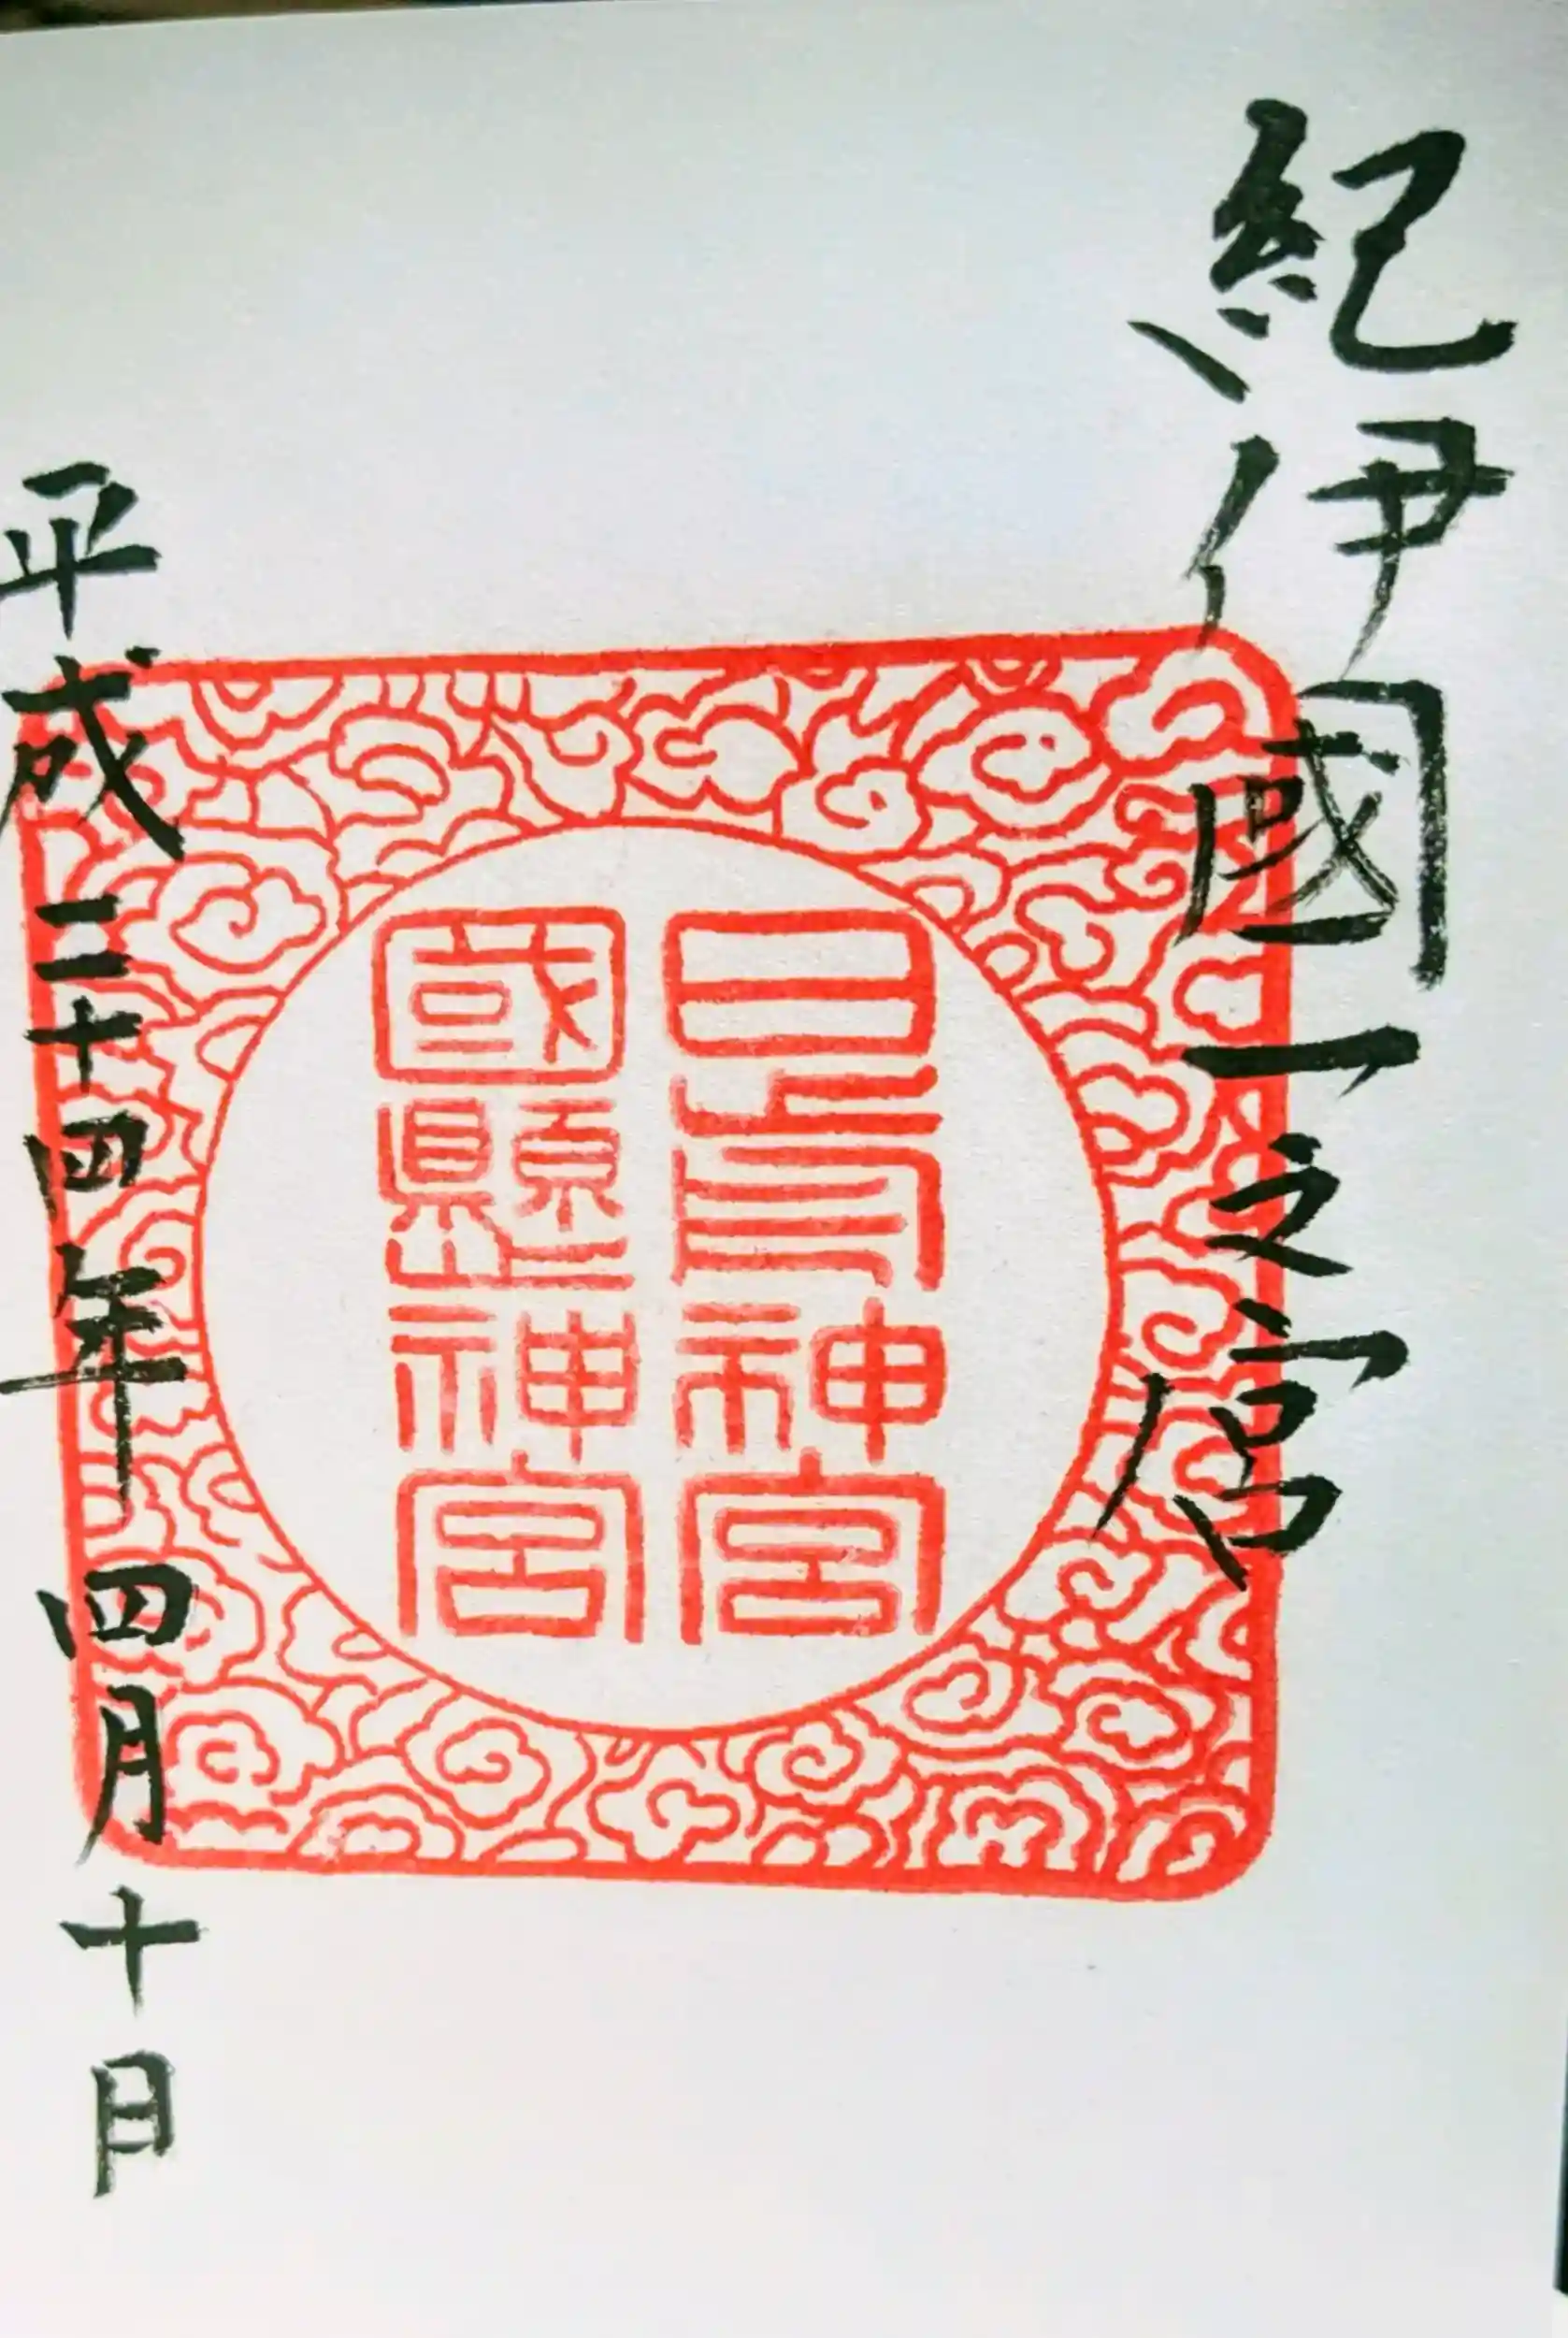 紀伊國一之宮
日前神宮
國懸神宮
平成二十四年四月十日